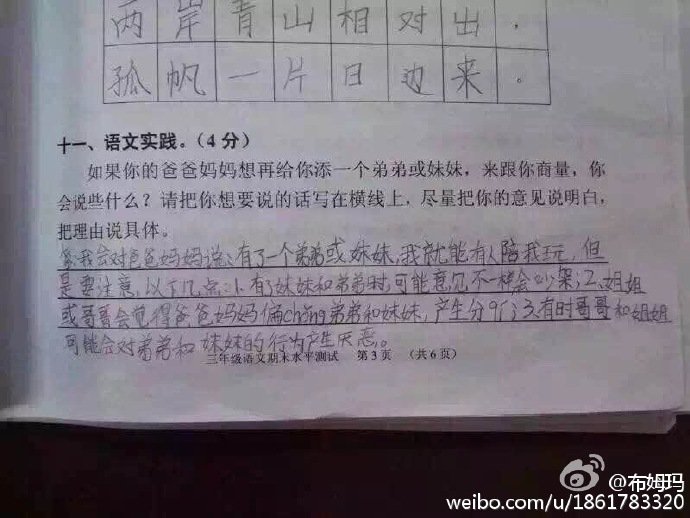 两岸青山相对出，
孤帆一片日边来。
十一、语文实践。（4分）
如果你的爸爸妈妈想再给你添一个弟弟或妹妹，来跟你商量，你
会说些什么？请把你想要说的话写在横线上，尽量把你的意见说明白，
把理由说具体。
我会对爸爸妈妈说：有了一个弟弟或妹妹，我就能有人陪我玩，但
是要注意以下几点：1、有了妹妹和弟弟时，可能意见不一样会吵架；2、姐姐
或哥哥会觉得爸爸妈妈偏chǒng弟弟和妹妹，产生分qí；3、有时哥哥和姐姐
可能会对弟弟和妹妹的行为产生厌恶。
三年级语文期末水平测试 第3页 （共6页）
@布姆玛
weibo.com/u/1861783320